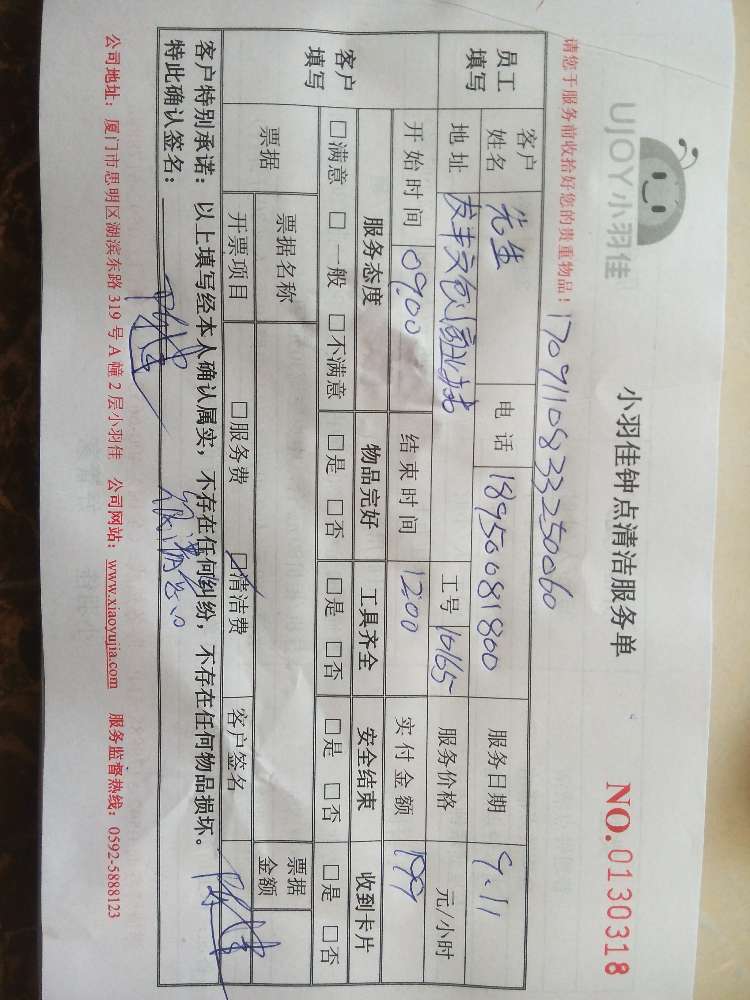 UJOY小羽佳
小羽佳钟点清洁服务单
NO.0130318
请您于服务前收拾好您的贵重物品!
17091108333250060
员工填写 客户姓名 先生 电话 18950081800 服务日期 9.11
地址 工号 10165 服务价格 元/小时
客户填写 开始时间 0900 结束时间 1200 实付金额 199
服务态度 物品完好 工具齐全 安全结束 收到卡片
□满意 □一般 □不满意 □是 □否 □是 □否 □是 □否 □是 □否
票据 票据名称 票据金额
开票项目 □服务费 □清洁费 客户签名
客户特别承诺:以上填写经本人确认属实,不存在任何纠纷,不存在任何物品损坏。
特此确认签名:
公司地址:厦门市思明区湖滨东路319号A幢2层小羽佳 公司网站:www.xiaoyujia.com 服务监督热线:0592-5888123